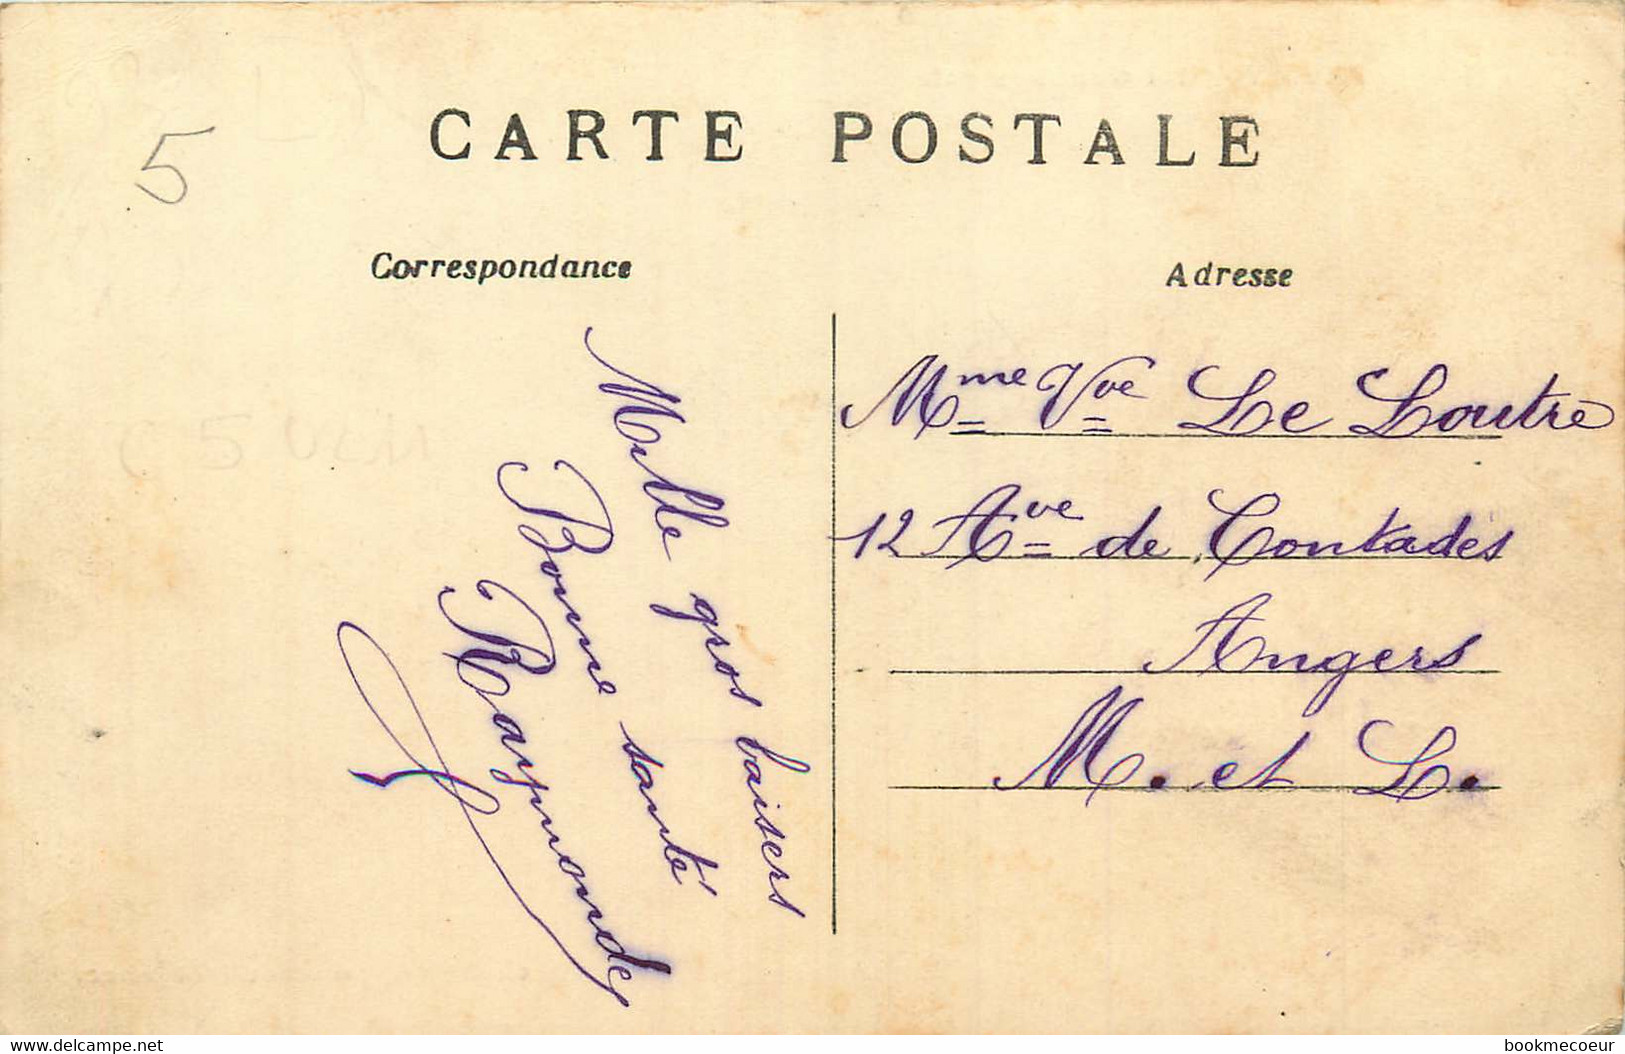 5
CARTE POSTALE
Correspondance
Adresse
Mille gros baisers
Bonne santé
Raymonde
Mme Vve Le Loutre
12 Ave de Contades
Angers
M. et L.
www.delcampe.net
bookmecoeur